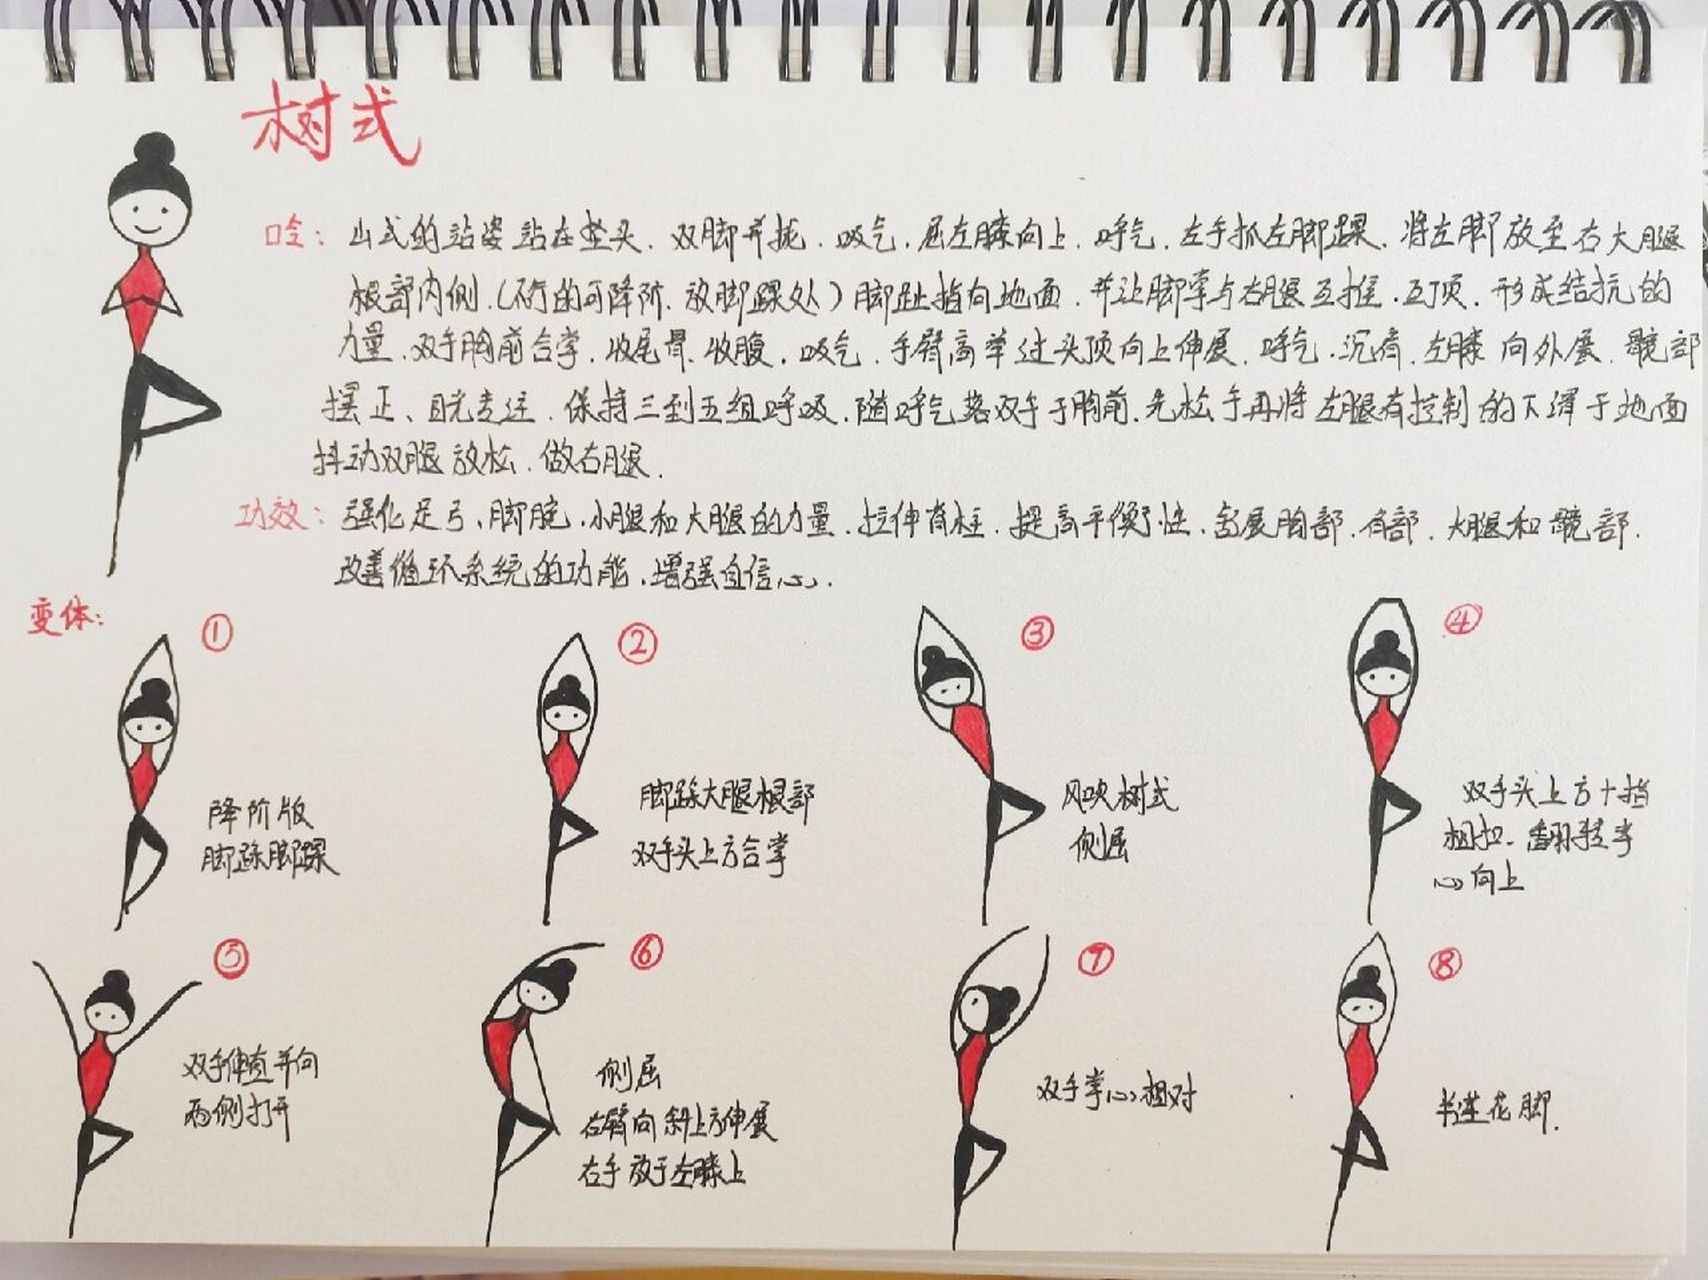 树式
口令：山式的站姿站在垫头．双脚并拢．吸气．屈左膝向上．呼气．左手抓左脚踝．将左脚放至右大腿
根部内侧．（不行的可降阶．放脚踝处）脚趾指向地面．并让脚掌与右腿互推．互顶．形成结抗的
力量．双手胸前合掌．收尾骨．收腹．吸气．手臂高举过头顶向上伸展．呼气．沉肩．左膝向外展．髋部
摆正、目光专注．保持三到五组呼吸．随呼气落双手于胸前．先松手再将左腿有控制的下落于地面
抖动双腿放松．做右腿．
功效：强化足弓、脚腕．小腿和大腿的力量．拉伸脊柱．提高平衡性．舒展胸部．肩部．大腿和髋部．
改善循环系统的功能．增强自信心．
变体：
①
降阶版
脚踩脚踝
②
脚踩大腿根部
双手头上方合掌
③
风吹树式
侧屈
④
双手头上方十指
相扣．翻转掌
心向上
⑤
双手伸直并向
两侧打开
⑥
侧屈
右臂向斜上方伸展
右手放于左膝上
⑦
双手掌心相对
⑧
半莲花脚．